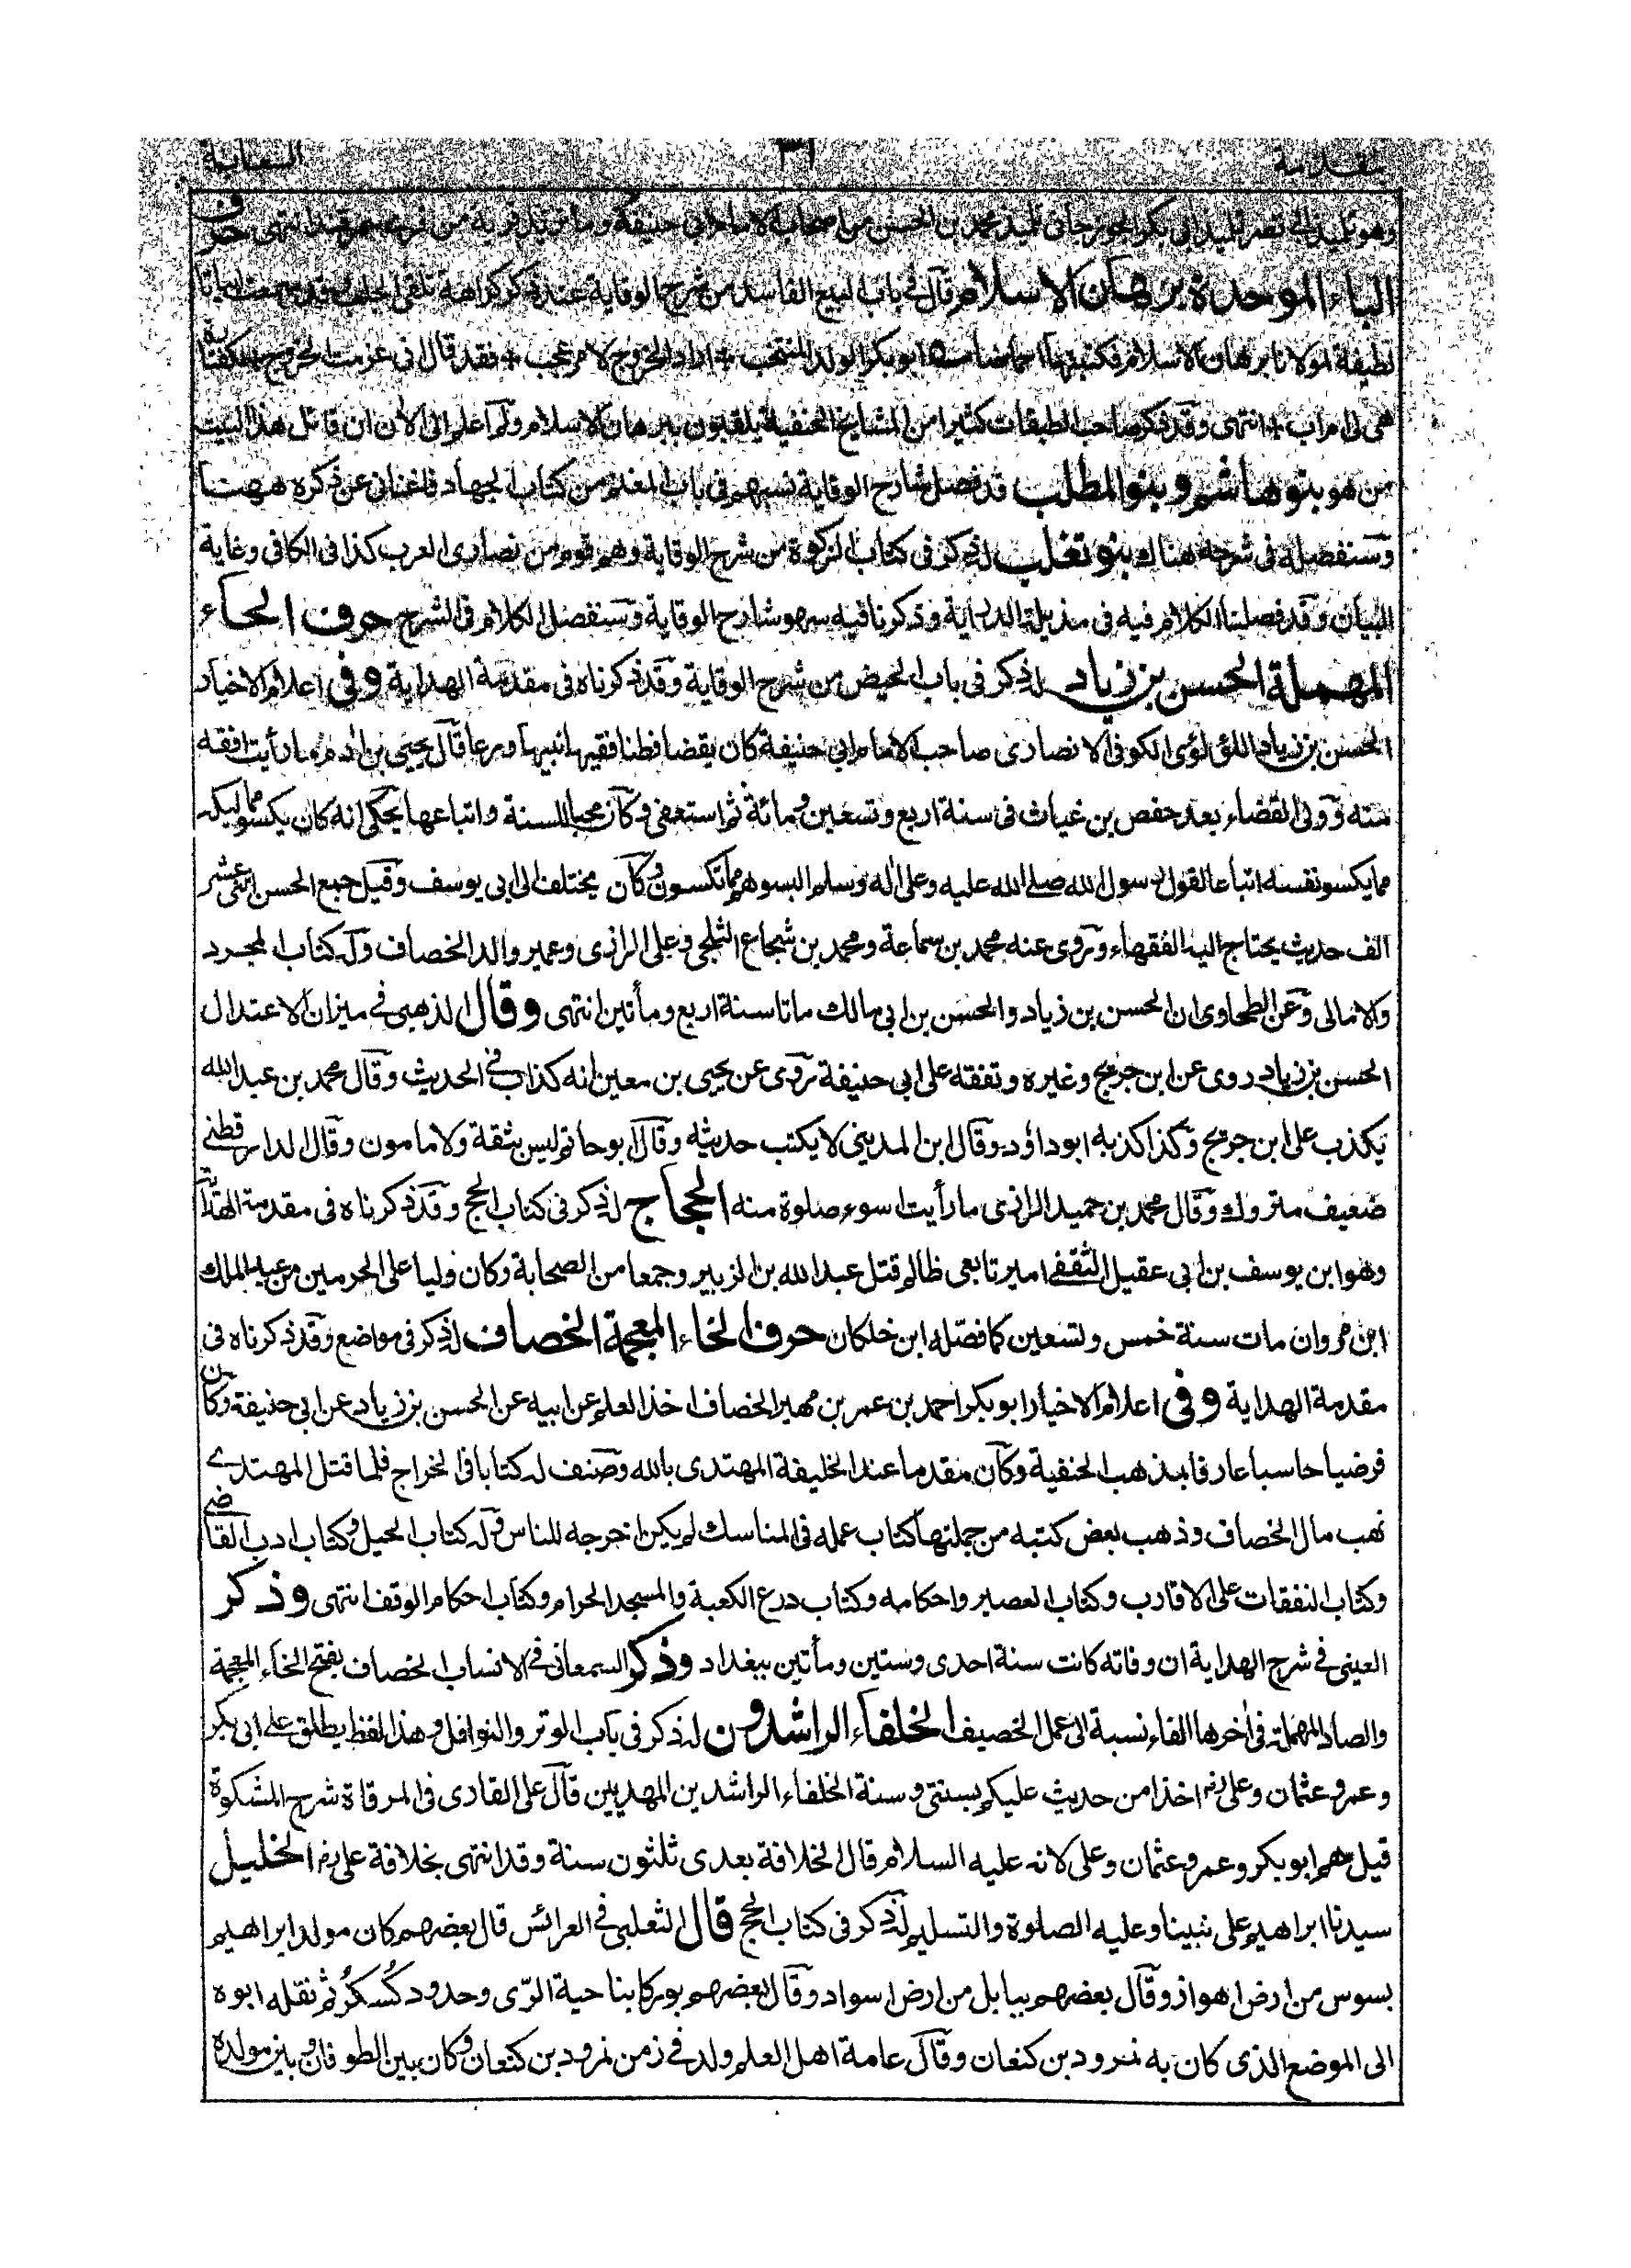 مقدمة ٣١ السعاية
وهو تلميذ ابي نصر تلميذ ابي بكر الجوزجاني تلميذ محمد بن الحسن من اصحاب الامام ابي حنيفة وماتريد قرية من قرى سمرقند انتهى حرف
الباء الموحدة برهان الاسلام قال في باب البيع الفاسد من شرح الوقاية عند ذكر كراهة تلقي الجلب وقد سمعت ابياتا
لطيفة لمولانا برهان الاسلام فكتبتها احماضا ابو بكر الولد المنتخب + اراد الخروج لامر عجب + فقد قال اني عزمت الخروج + لكفتارة
هي لي ام اب + انتهى وقد ذكر صاحب الطبقات كثيرا من المشايخ الحنفية يلقبون ببرهان الاسلام ولم اعلم الى الآن ان قائل هذا البيت
من هو بنو هاشم وبنو المطلب قد فصل شارح الوقاية نسبهم في باب المغنم من كتاب الجهاد فاغناني عن ذكره ههنا
وسنفصله في شرحه هناك بنو تغلب له ذكر في كتاب الزكوة من شرح الوقاية وهم قوم من نصارى العرب كذا في الكافي وغاية
البيان وقد فصلنا الكلام فيه في مذيلة الدراية وذكرنا فيه سهو شارح الوقاية وسنفصل الكلام في الشرح حرف الحاء
المهملة الحسن بن زياد له ذكر في باب الحيض من شرح الوقاية وقد ذكرناه في مقدمة الهداية وفي اعلام الاخيار
الحسن بن زياد اللؤلؤى الكوفى الانصارى صاحب الامام ابي حنيفة كان يقضا فطنا فقيها نبيها ورعا قال يحيى بن ادم ما رأيت افقه
منه وولى القضاء بعد حفص بن غياث فى سنة اربع وتسعين ومائة ثم استعفى وكان محبا للسنة واتباعها يحكى انه كان يكسو مماليكه
مما يكسو نفسه اتباعا لقول رسول الله صلے الله عليه وعلى اله وسلم البسوهم مما تكسون وكان يختلف الى ابي يوسف وقيل جمع الحسن اثنى عشر
الف حديث يحتاج اليه الفقهاء وروى عنه محمد بن سماعة ومحمد بن شجاع الثلجى وعلى الرازى وعمير والد الخصاف وله كتاب المجرد
والامالى وعن الطحاوى ان الحسن بن زياد والحسن بن ابى مالك ماتا سنة اربع ومأتين انتهى وقال الذهبى فى ميزان الاعتدال
الحسن بن زياد روى عن ابن جريج وغيره وتفقه على ابى حنيفة روى عن يحيى بن معين انه كذاب فى الحديث وقال محمد بن عبد الله
يكذب على ابن جريج وكذا كذبه ابو داؤد وقال ابن المدينى لا يكتب حديثه وقال ابو حاتم ليس بثقة ولا مامون وقال الدارقطنے
ضعيف متروك وقال محمد بن حميد الرازى ما رأيت اسوء صلوة منه الحجاج له ذكر فى كتاب الحج وقد ذكرناه فى مقدمة الهداية
وهو ابن يوسف بن ابى عقيل الثقفے امير تابعى ظالم قتل عبد الله بن الزبير وجمعا من الصحابة وكان وليا على الحرمين من عبد الملك
ابن مروان مات سنة خمس وتسعين كما فصّله ابن خلكان حرف الخاء المعجمة الخصاف له ذكر فى مواضع وقد ذكرناه فى
مقدمة الهداية وفى اعلام الاخيار ابو بكر احمد بن عمر بن مهير الخصاف اخذ العلم عن ابيه عن الحسن بن زياد عن ابى حنيفة وكان
فرضيا حاسبا عارفا بمذهب الحنفية وكان مقدما عند الخليفة المهتدى بالله وصنف له كتابا فى الخراج فلما قتل المهتدے
نهب مال الخصاف وذهب بعض كتبه من جملتها كتاب عمله فى المناسك لم يكن اخرجه للناس وله كتاب الحيل وكتاب ادب القاضے
وكتاب النفقات على الاقارب وكتاب العصير واحكامه وكتاب درع الكعبة والمسجد الحرام وكتاب احكام الوقف انتهى وذكر
العينى فى شرح الهداية ان وفاته كانت سنة احدى وستين ومأتين ببغداد وذكر السمعانى فى الانساب الخصاف بفتح الخاء المعجمة
والصاد المهملة فى اخرها الفاء نسبة الى عمل الخصيف الخلفاء الراشدون له ذكر فى باب الوتر والنوافل وهذا لفظ يطلق على ابى بكر
وعمر وعثمان وعلى رض اخذا من حديث عليكم بسنتى وسنة الخلفاء الراشدين المهديين قال على القارى فى المرقاة شرح المشكوة
قيل هم ابو بكر وعمر وعثمان وعلى لانه عليه السلام قال الخلافة بعدى ثلثون سنة وقد انتهى بخلافة على رض الخليل
سيدنا ابراهيم على نبينا وعليه الصلوة والتسليم له ذكر فى كتاب الحج قال الثعلبى فى العرائس قال بعضهم كان مولد ابراهيم
بسوس من ارض اهواز وقال بعضهم ببابل من ارض اسواد وقال بعضهم بوركا بناحية الرّى وحدود كُسكَرُ ثم نقله ابوه
الى الموضع الذى كان به نمرود بن كنعان وقال عامة اهل العلم ولد فى زمن نمرود بن كنعان وكان بين الطوفان وبين مولده